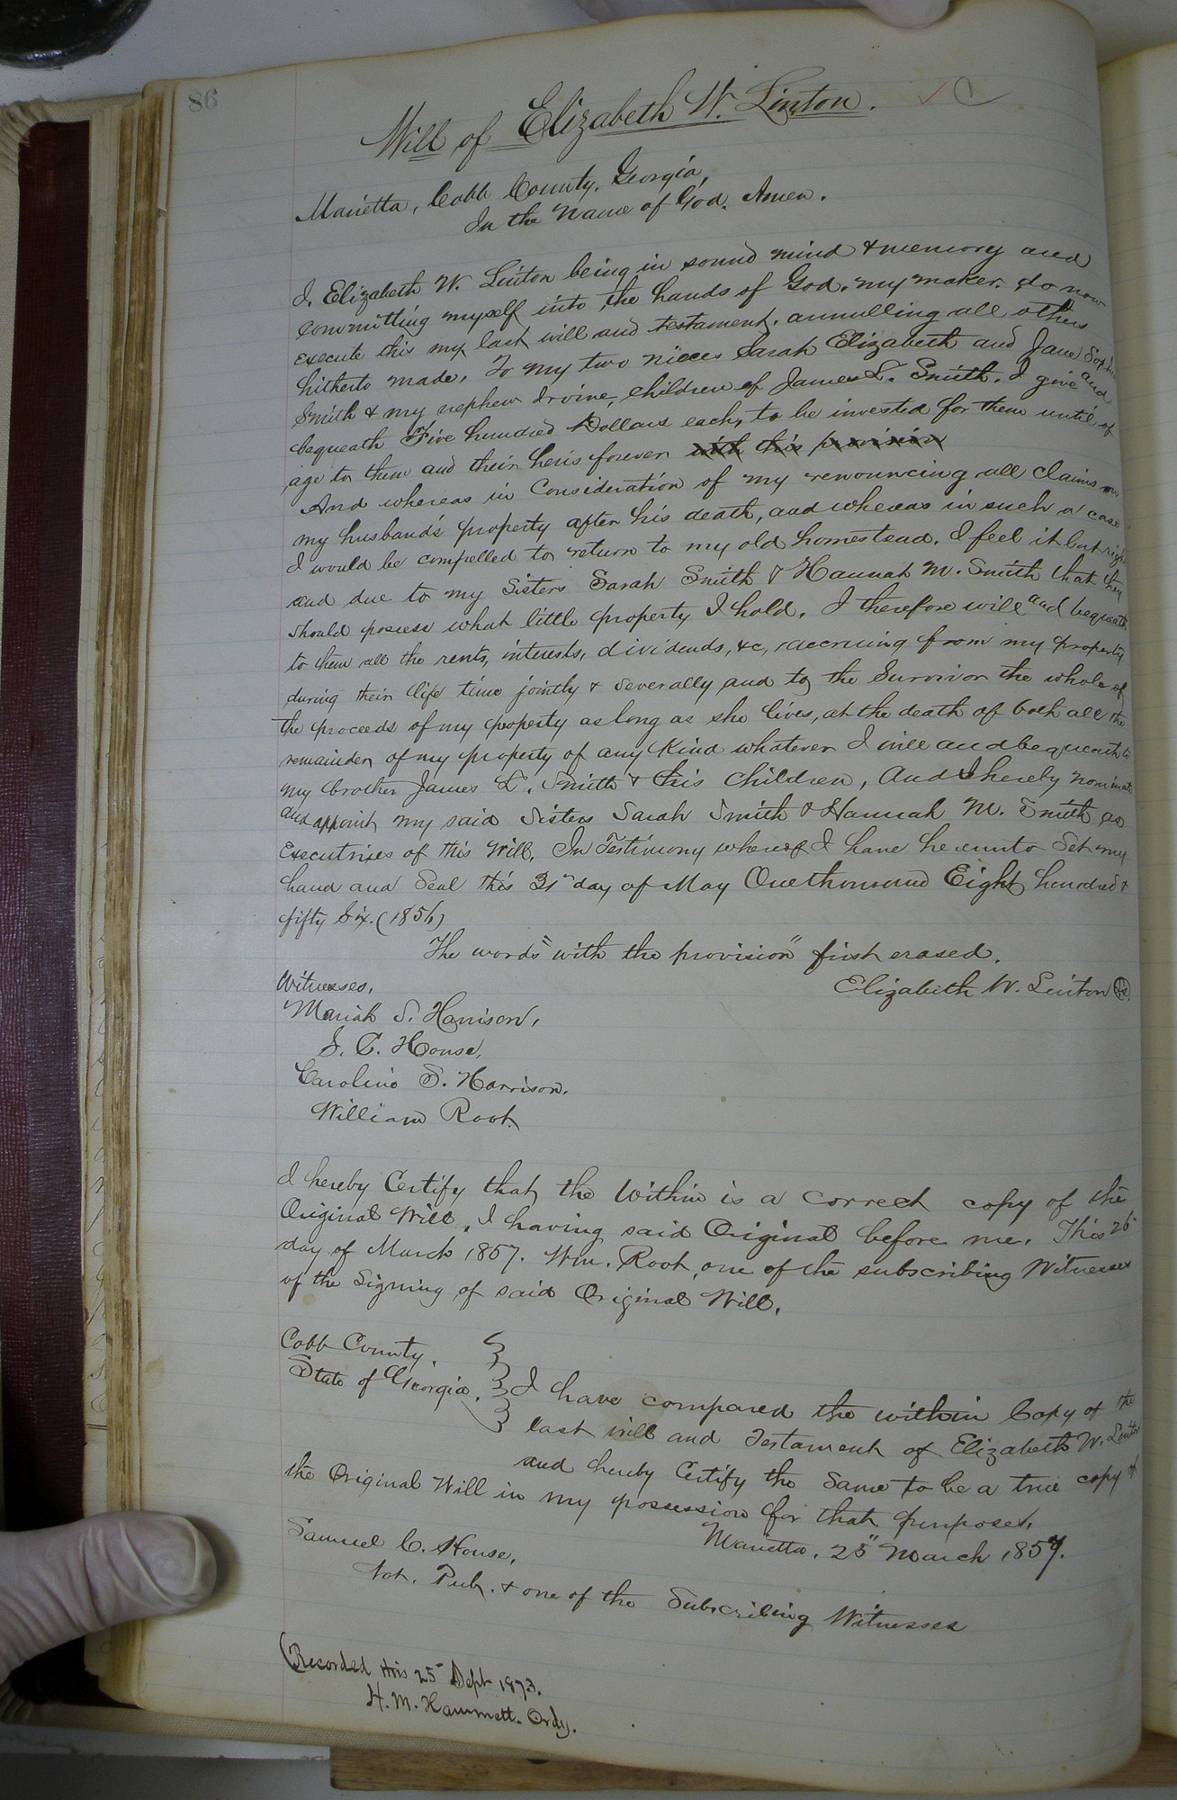 86
Will of Elizabeth W. Linton.
Marietta, Cobb County, Georgia,
In the Name of God. Amen.
I, Elizabeth W. Linton being in sound mind & memory and
committing myself into the hands of God, my maker, do now
execute this my last will and testament, annulling all others
hitherto made. To my two nieces Sarah Elizabeth and Jane
Smith & my nephew Irvine, children of James L. Smith. I give and
bequeath Five hundred Dollars each, to be invested for them until of
age to them and their heirs forever with this provision
And whereas in Consideration of my renouncing all Claims on
my husband's property after his death, and whereas in such a case
I would be compelled to return to my old homestead, I feel it but right
and due to my Sisters Sarah Smith & Hannah M. Smith that they
should possess what little property I hold, I therefore will and bequeath
to them all the rents, interests, dividends, &c, accruing from my property
during their life time jointly & severally and to the Survivor the whole of
the proceeds of my property as long as she lives, at the death of both all the
remainder of my property of any Kind whatever I will and bequeath to
my brother James L. Smith & his children, And I hereby nominate
and appoint my said Sisters Sarah Smith & Hannah M. Smith as
Executrixes of this Will, In Testimony whereof I have hereunto Set my
hand and Seal this 31st day of May One thousand Eight hundred &
fifty Six. (1856)
The words "with the provision" first erased.
Witnesses,
Elizabeth W. Linton
Mariah S. Harrison,
S. C. House,
Caroline S. Harrison.
William Root.
I hereby Certify that the Within is a correct copy of the
Original Will, I having said Original before me. This 25"
day of March 1857. Wm. Root, one of the subscribing Witnesses
of the Signing of said Original Will.
Cobb County,
State of Georgia,
I have compared the within Copy of the
last will and Testament of Elizabeth W. Linton
and hereby Certify the Same to be a true copy of
the Original Will in my possession for that purpose.
Marietta, 25" March 1857.
Samuel C. House,
Not. Pub. & one of the Subscribing Witnesses
(Recorded this 25" Sept 1873.
H. M. Hammett. Ordy.